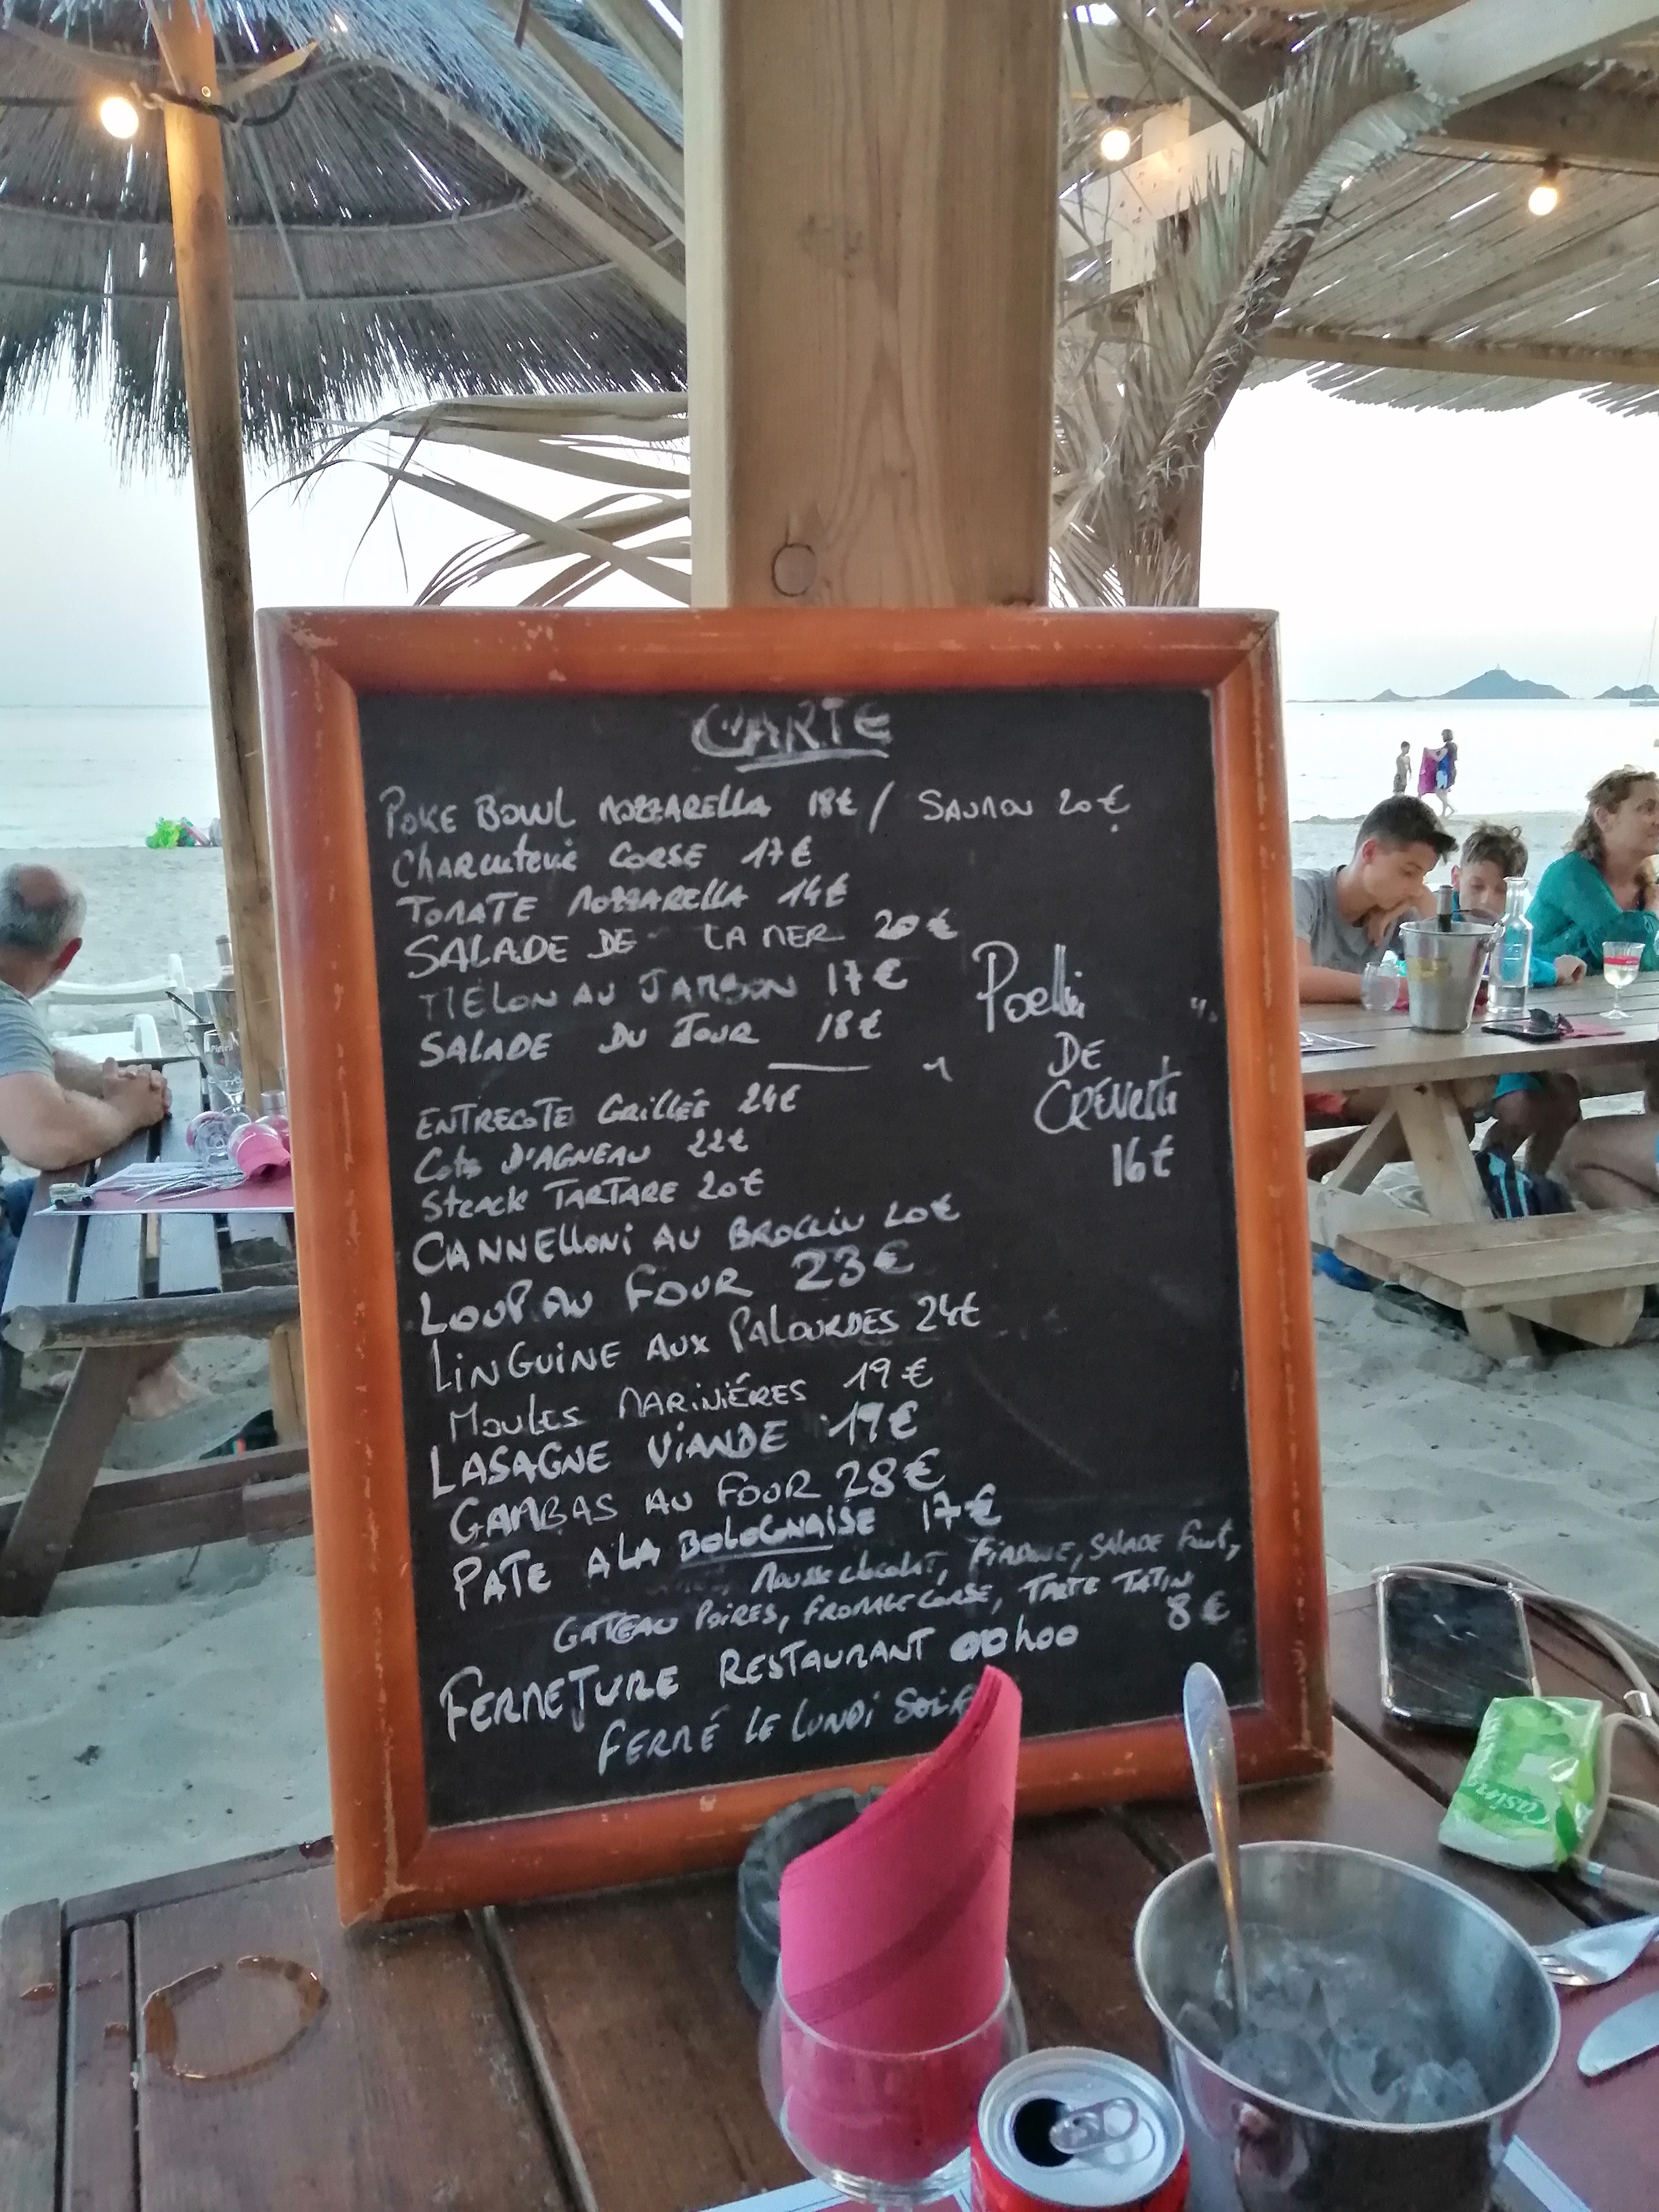 CARTE
POKE BOWL MOZZARELLA 18€ / SAUMON 20€
CHARCUTERIE CORSE 17€
TOMATE MOZZARELLA 14€
SALADE DE LA MER 20€
MÉLON AU JAMBON 17€
SALADE DU JOUR 18€
Poelli
DE
CREVETTE
16€
ENTRECOTE GRILLÉE 24€
COTE D'AGNEAU 22€
STEACK TARTARE 20€
CANNELLONI AU BROCCIU 20€
LOUP AU FOUR 23€
LINGUINE AUX PALOURDES 24€
MOULES MARINIÉRES 19€
LASAGNE VIANDE 19€
GAMBAS AU FOUR 28€
PATE A LA BOLOGNAISE 17€
Mousse chocolat, FIADONE, SALADE Fruit,
GATEAU POIRES, FROMAGE CORSE, TARTE TATIN
8€
FERMETURE RESTAURANT 00h00
FERMÉ LE LUNDI SOIR
Casino